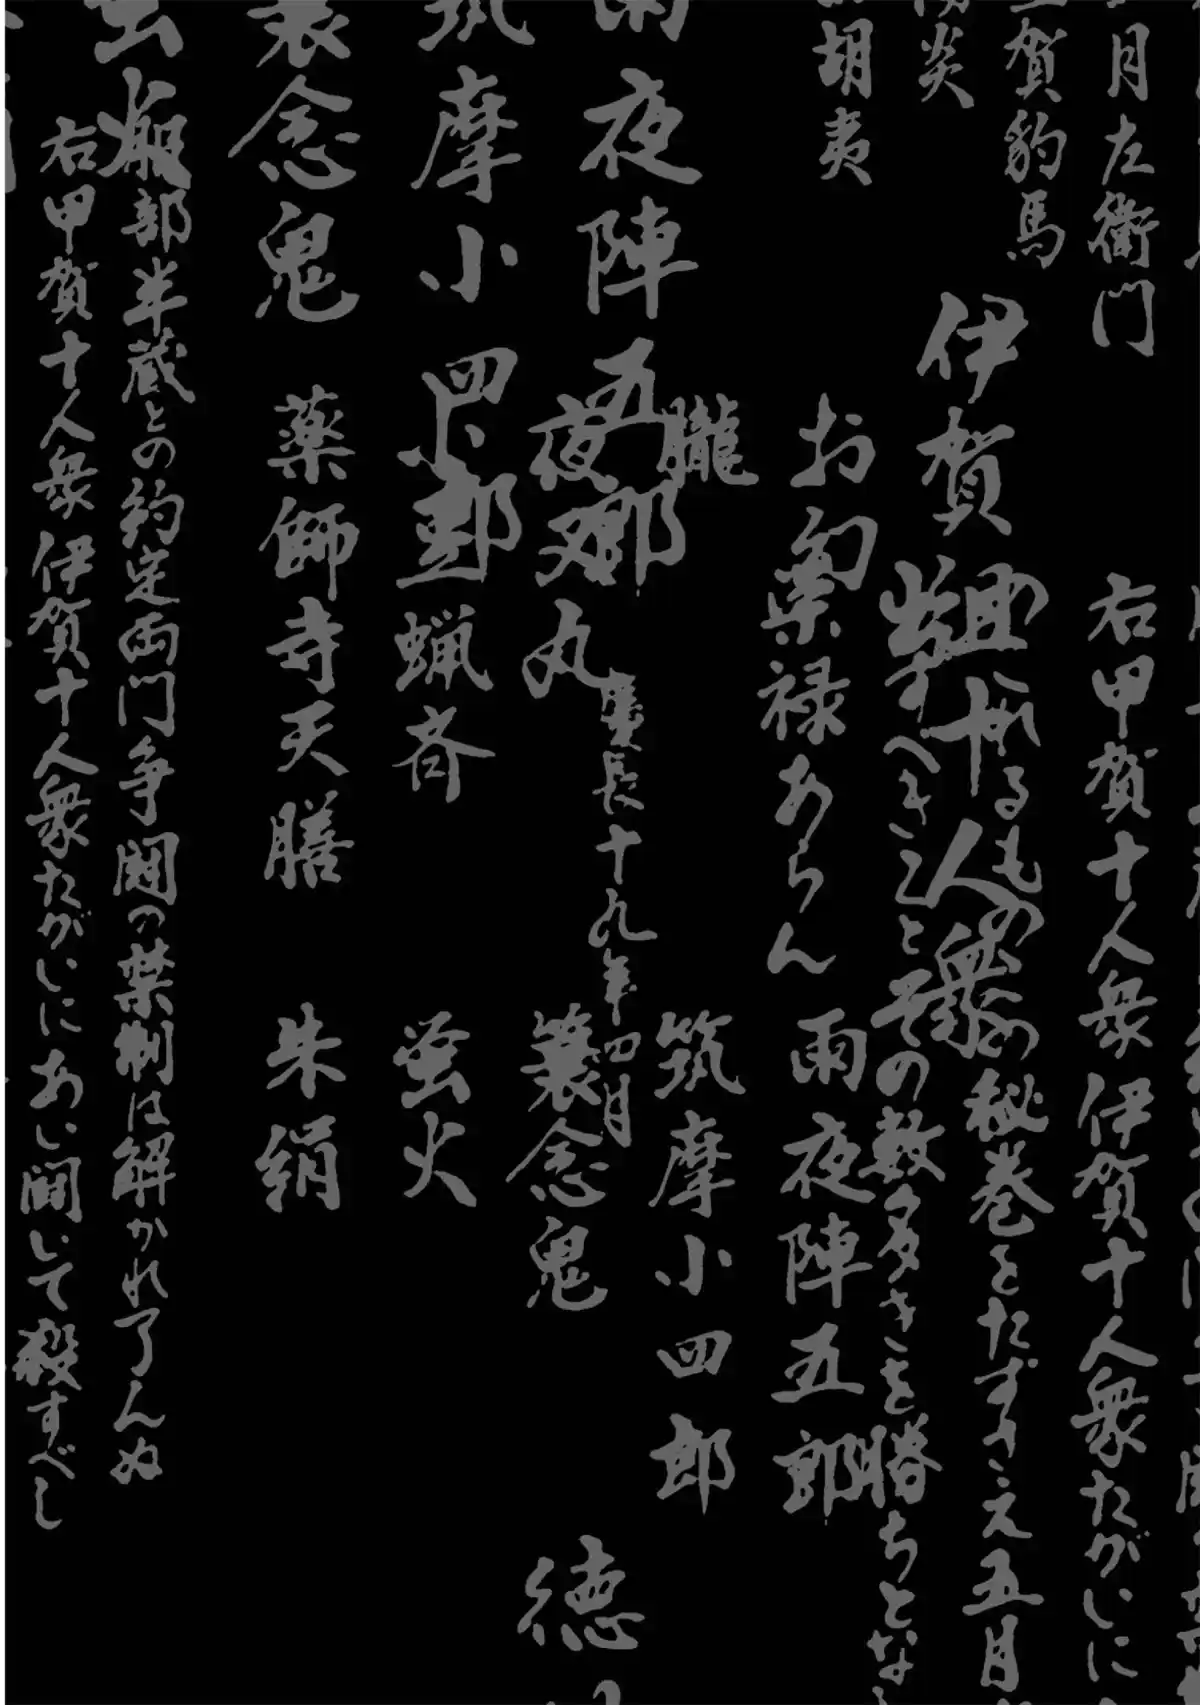 月左衛門
右甲賀十人衆伊賀十人衆たがいに
賀豹馬
伊賀組十人衆
のるものこの秘巻をたずさえ五月
炎
すべきことその数多きを勝ちとな
胡夷
お幻
禄あらん
雨夜陣五郎
朧
筑摩小四郎
夜陣五郎
慶長十九年四月
夜叉丸
蓑念鬼
徳
筑摩小四郎
小豆蝋斉
蛍火
蓑念鬼
薬師寺天膳
朱絹
服部半蔵との約定両門争闘の禁制は解かれ了んぬ
右甲賀十人衆伊賀十人衆たがいにあい闘いて殺すべし